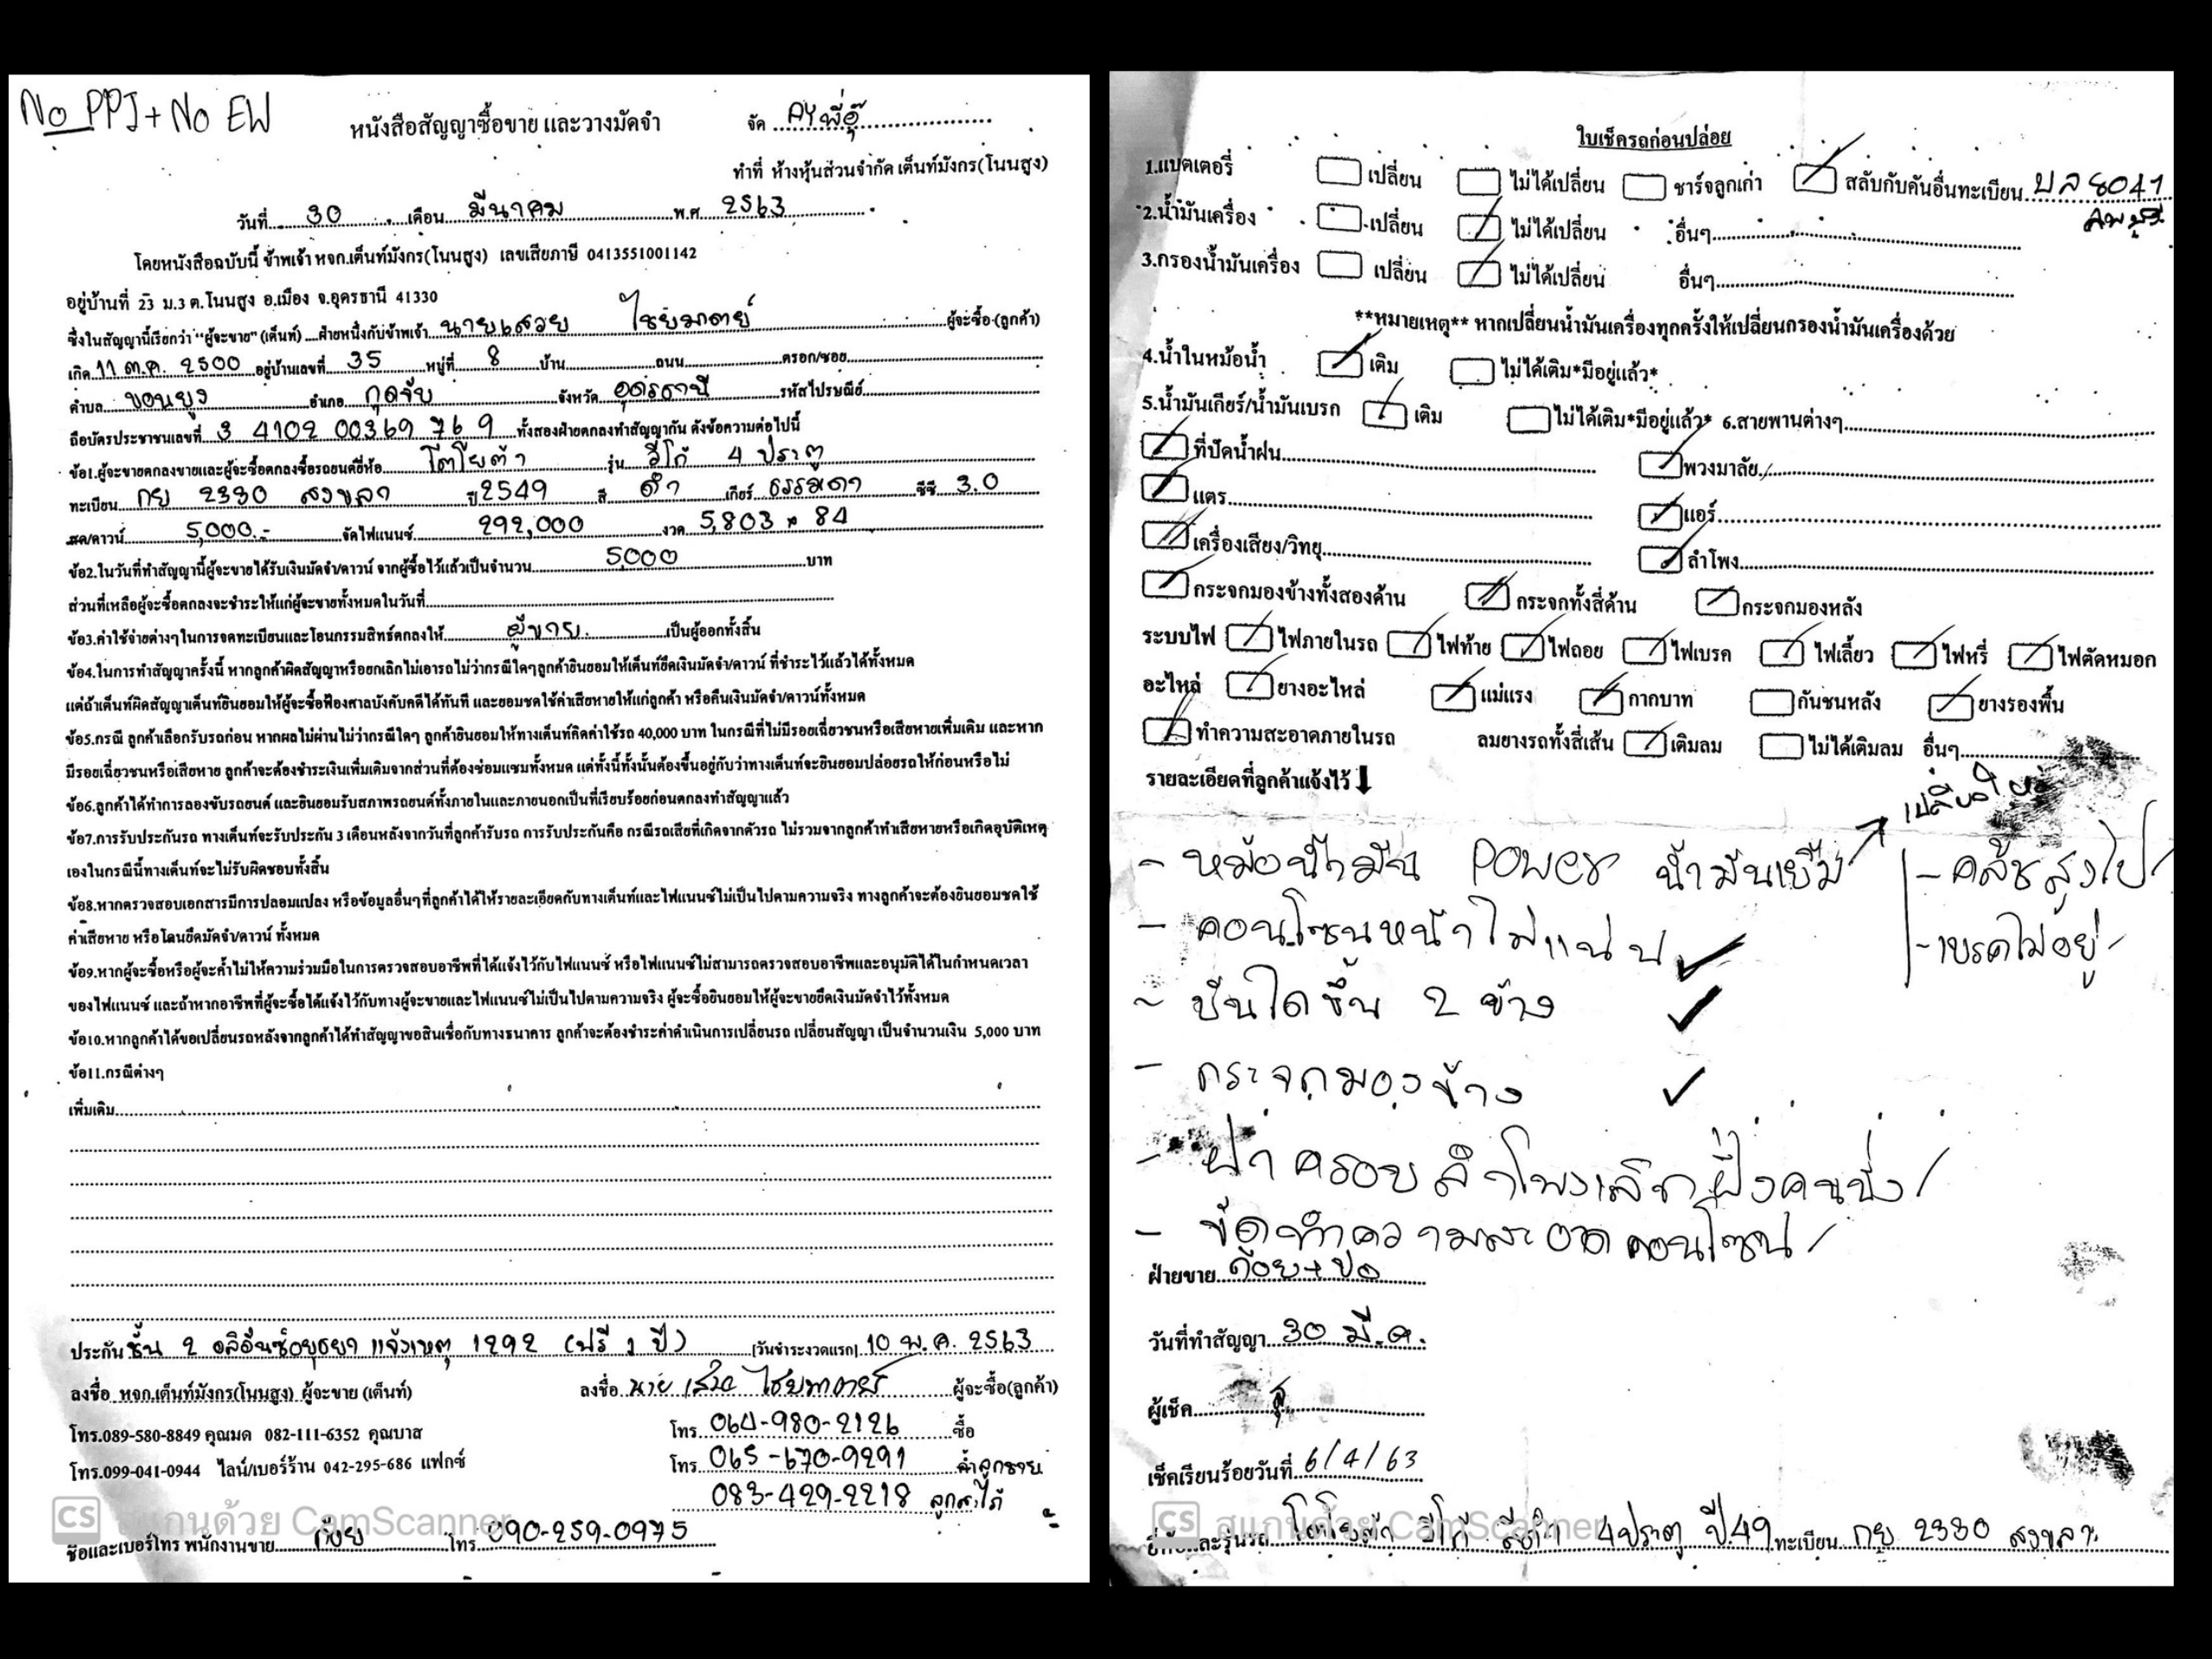 No PPI + No EW
หนังสือสัญญาซื้อขาย และวางมัดจำ
จัด AY พี่อุ๊
ทำที่ ห้างหุ้นส่วนจำกัด เต็นท์มังกร(โนนสูง)
วันที่ 30 เดือน มีนาคม พ.ศ 2563
โดยหนังสือฉบับนี้ ข้าพเจ้า หจก.เต็นท์มังกร(โนนสูง) เลขเสียภาษี 0413551001142
อยู่บ้านที่ 23 ม.3 ต.โนนสูง อ.เมือง จ.อุดรธานี 41330
ซึ่งในสัญญานี้เรียกว่า "ผู้จะขาย" (เต็นท์) ....ฝ่ายหนึ่งกับข้าพเจ้า นาย ผู้จะซื้อ (ลูกค้า)
เกิด 11 ต.ค. 2500 อยู่บ้านเลขที่ 35 หมู่ที่ 8 บ้าน ถนน ตรอก/ซอย
ตำบล ขอนยูง อำเภอ กุดจับ จังหวัด อุดรธานี รหัสไปรษณีย์
ถือบัตรประชาชนเลขที่ 3 4102 00369 76 9 ทั้งสองฝ่ายตกลงทำสัญญากัน ดังข้อความต่อไปนี้
ข้อ1.ผู้จะขายตกลงขายและผู้จะซื้อตกลงซื้อรถยนต์ยี่ห้อ โตโยต้า รุ่น วีโก้ 4 ประตู
ทะเบียน กย 2330 สงขลา ปี 2549 สี ดำ เกียร์ ธรรมดา ซีซี 3.0
สด/ดาวน์ 5,000.- จัดไฟแนนซ์ 292,000 งวด 5,803 x 84
ข้อ2.ในวันที่ทำสัญญานี้ผู้จะขายได้รับเงินมัดจำ/ดาวน์ จากผู้ซื้อไว้แล้วเป็นจำนวน 5000 บาท
ส่วนที่เหลือผู้จะซื้อตกลงจะชำระให้แก่ผู้จะขายทั้งหมดในวันที่
ข้อ3.ค่าใช้จ่ายต่างๆในการจดทะเบียนและโอนกรรมสิทธ์ตกลงให้ ผู้ขาย เป็นผู้ออกทั้งสิ้น
ข้อ4.ในการทำสัญญาครั้งนี้ หากลูกค้าผิดสัญญาหรือยกเลิกไม่เอารถไม่ว่ากรณีใดๆลูกค้ายินยอมให้เต็นท์ยึดเงินมัดจำ/ดาวน์ ที่ชำระไว้แล้วได้ทั้งหมด
แต่ถ้าเต็นท์ผิดสัญญาเต็นท์ยินยอมให้ผู้จะซื้อฟ้องศาลบังคับคดีได้ทันที และยอมชดใช้ค่าเสียหายให้แก่ลูกค้า หรือคืนเงินมัดจำ/ดาวน์ทั้งหมด
ข้อ5.กรณี ลูกค้าเลือกรับรถก่อน หากผลไม่ผ่านไม่ว่ากรณีใดๆ ลูกค้ายินยอมให้ทางเต็นท์คิดค่าใช้รถ 40,000 บาท ในกรณีที่ไม่มีรอยเฉี่ยวชนหรือเสียหายเพิ่มเติม และหาก
มีรอยเฉี่ยวชนหรือเสียหาย ลูกค้าจะต้องชำระเงินเพิ่มเติมจากส่วนที่ต้องซ่อมแซมทั้งหมด แต่ทั้งนี้ทั้งนั้นต้องขึ้นอยู่กับว่าทางเต็นท์จะยินยอมปล่อยรถให้ก่อนหรือไม่
ข้อ6.ลูกค้าได้ทำการลองขับรถยนต์ และยินยอมรับสภาพรถยนต์ทั้งภายในและภายนอกเป็นที่เรียบร้อยก่อนตกลงทำสัญญาแล้ว
ข้อ7.การรับประกันรถ ทางเต็นท์จะรับประกัน 3 เดือนหลังจากวันที่ลูกค้ารับรถ การรับประกันคือ กรณีรถเสียที่เกิดจากตัวรถ ไม่รวมจากลูกค้าทำเสียหายหรือเกิดอุบัติเหตุ
เองในกรณีนี้ทางเต็นท์จะไม่รับผิดชอบทั้งสิ้น
ข้อ8.หากตรวจสอบเอกสารมีการปลอมแปลง หรือข้อมูลอื่นๆที่ลูกค้าได้ให้รายละเอียดกับทางเต็นท์และไฟแนนซ์ไม่เป็นไปตามความจริง ทางลูกค้าจะต้องยินยอมชดใช้
ค่าเสียหาย หรือโดนยึดมัดจำ/ดาวน์ ทั้งหมด
ข้อ9.หากผู้จะซื้อหรือผู้จะค้ำไม่ให้ความร่วมมือในการตรวจสอบอาชีพที่ได้แจ้งไว้กับไฟแนนซ์ หรือไฟแนนซ์ไม่สามารถตรวจสอบอาชีพและอนุมัติได้ในกำหนดเวลา
ของไฟแนนซ์ และถ้าหากอาชีพที่ผู้จะซื้อได้แจ้งไว้กับทางผู้จะขายและไฟแนนซ์ไม่เป็นไปตามความจริง ผู้จะซื้อยินยอมให้ผู้จะขายยึดเงินมัดจำไว้ทั้งหมด
ข้อ10.หากลูกค้าได้ขอเปลี่ยนรถหลังจากลูกค้าได้ทำสัญญาขอสินเชื่อกับทางธนาคาร ลูกค้าจะต้องชำระค่าดำเนินการเปลี่ยนรถ เปลี่ยนสัญญา เป็นจำนวนเงิน 5,000 บาท
ข้อ11.กรณีต่างๆ
เพิ่มเติม
ประกัน ชั้น 2 อลิอันซ์อยุธยา แจ้งเหตุ 1292 (ฟรี 1 ปี) [วันชำระงวดแรก] 10 พ.ค. 2563
ลงชื่อ หจก.เต็นท์มังกร(โนนสูง) ผู้จะขาย (เต็นท์) ลงชื่อ นาย ผู้จะซื้อ(ลูกค้า)
โทร.089-580-8849 คุณมด 082-111-6352 คุณบาส โทร. 064-980-2126 ซื้อ
โทร.099-041-0944 ไลน์/เบอร์ร้าน 042-295-686 แฟกซ์ โทร. 065-670-9291 ค้ำลูกชาย
083-429-2218 ลูกสะใภ้
CS สแกนด้วย CamScanner
ชื่อและเบอร์โทร พนักงานขาย ก้อย โทร. 090-259-0975
ใบเช็ครถก่อนปล่อย
1.แบตเตอรี่ เปลี่ยน ไม่ได้เปลี่ยน ชาร์จลูกเก่า สลับกับคันอื่นทะเบียน บล 8041
ลพบุรี
2.น้ำมันเครื่อง เปลี่ยน ไม่ได้เปลี่ยน อื่นๆ
3.กรองน้ำมันเครื่อง เปลี่ยน ไม่ได้เปลี่ยน อื่นๆ
**หมายเหตุ** หากเปลี่ยนน้ำมันเครื่องทุกครั้งให้เปลี่ยนกรองน้ำมันเครื่องด้วย
4.น้ำในหม้อน้ำ เติม ไม่ได้เติม*มีอยู่แล้ว*
5.น้ำมันเกียร์/น้ำมันเบรก เติม ไม่ได้เติม*มีอยู่แล้ว* 6.สายพานต่างๆ
ที่ปัดน้ำฝน พวงมาลัย
แตร แอร์
เครื่องเสียง/วิทยุ ลำโพง
กระจกมองข้างทั้งสองด้าน กระจกทั้งสี่ด้าน กระจกมองหลัง
ระบบไฟ ไฟภายในรถ ไฟท้าย ไฟถอย ไฟเบรค ไฟเลี้ยว ไฟหรี่ ไฟตัดหมอก
อะไหล่ ยางอะไหล่ แม่แรง กากบาท กันชนหลัง ยางรองพื้น
ทำความสะอาดภายในรถ ลมยางรถทั้งสี่เส้น เติมลม ไม่ได้เติมลม อื่นๆ
รายละเอียดที่ลูกค้าแจ้งไว้
เปลี่ยนให้
- หม้อน้ำมัน Power น้ำมันเยิ้ม
- คลัชสูงไป
- คอนโซนหน้าไม่แน่น
- เบรคไม่อยู่
- บันไดขึ้น 2 ข้าง
- กระจกมองข้าง
- ฝาครอบลำโพงเล็กฝั่งคนนั่ง
- ขัดทำความสะอาดคอนโซน
ฝ่ายขาย ก้อย+ปอ
วันที่ทำสัญญา 30 มี.ค.
ผู้เช็ค
เช็คเรียบร้อยวันที่ 6/4/63
CS สแกนด้วย CamScanner
ยี่ห้อและรุ่นรถ โตโยต้า วีโก้ สีดำ 4ประตู ปี49 ทะเบียน กย 2330 สงขลา